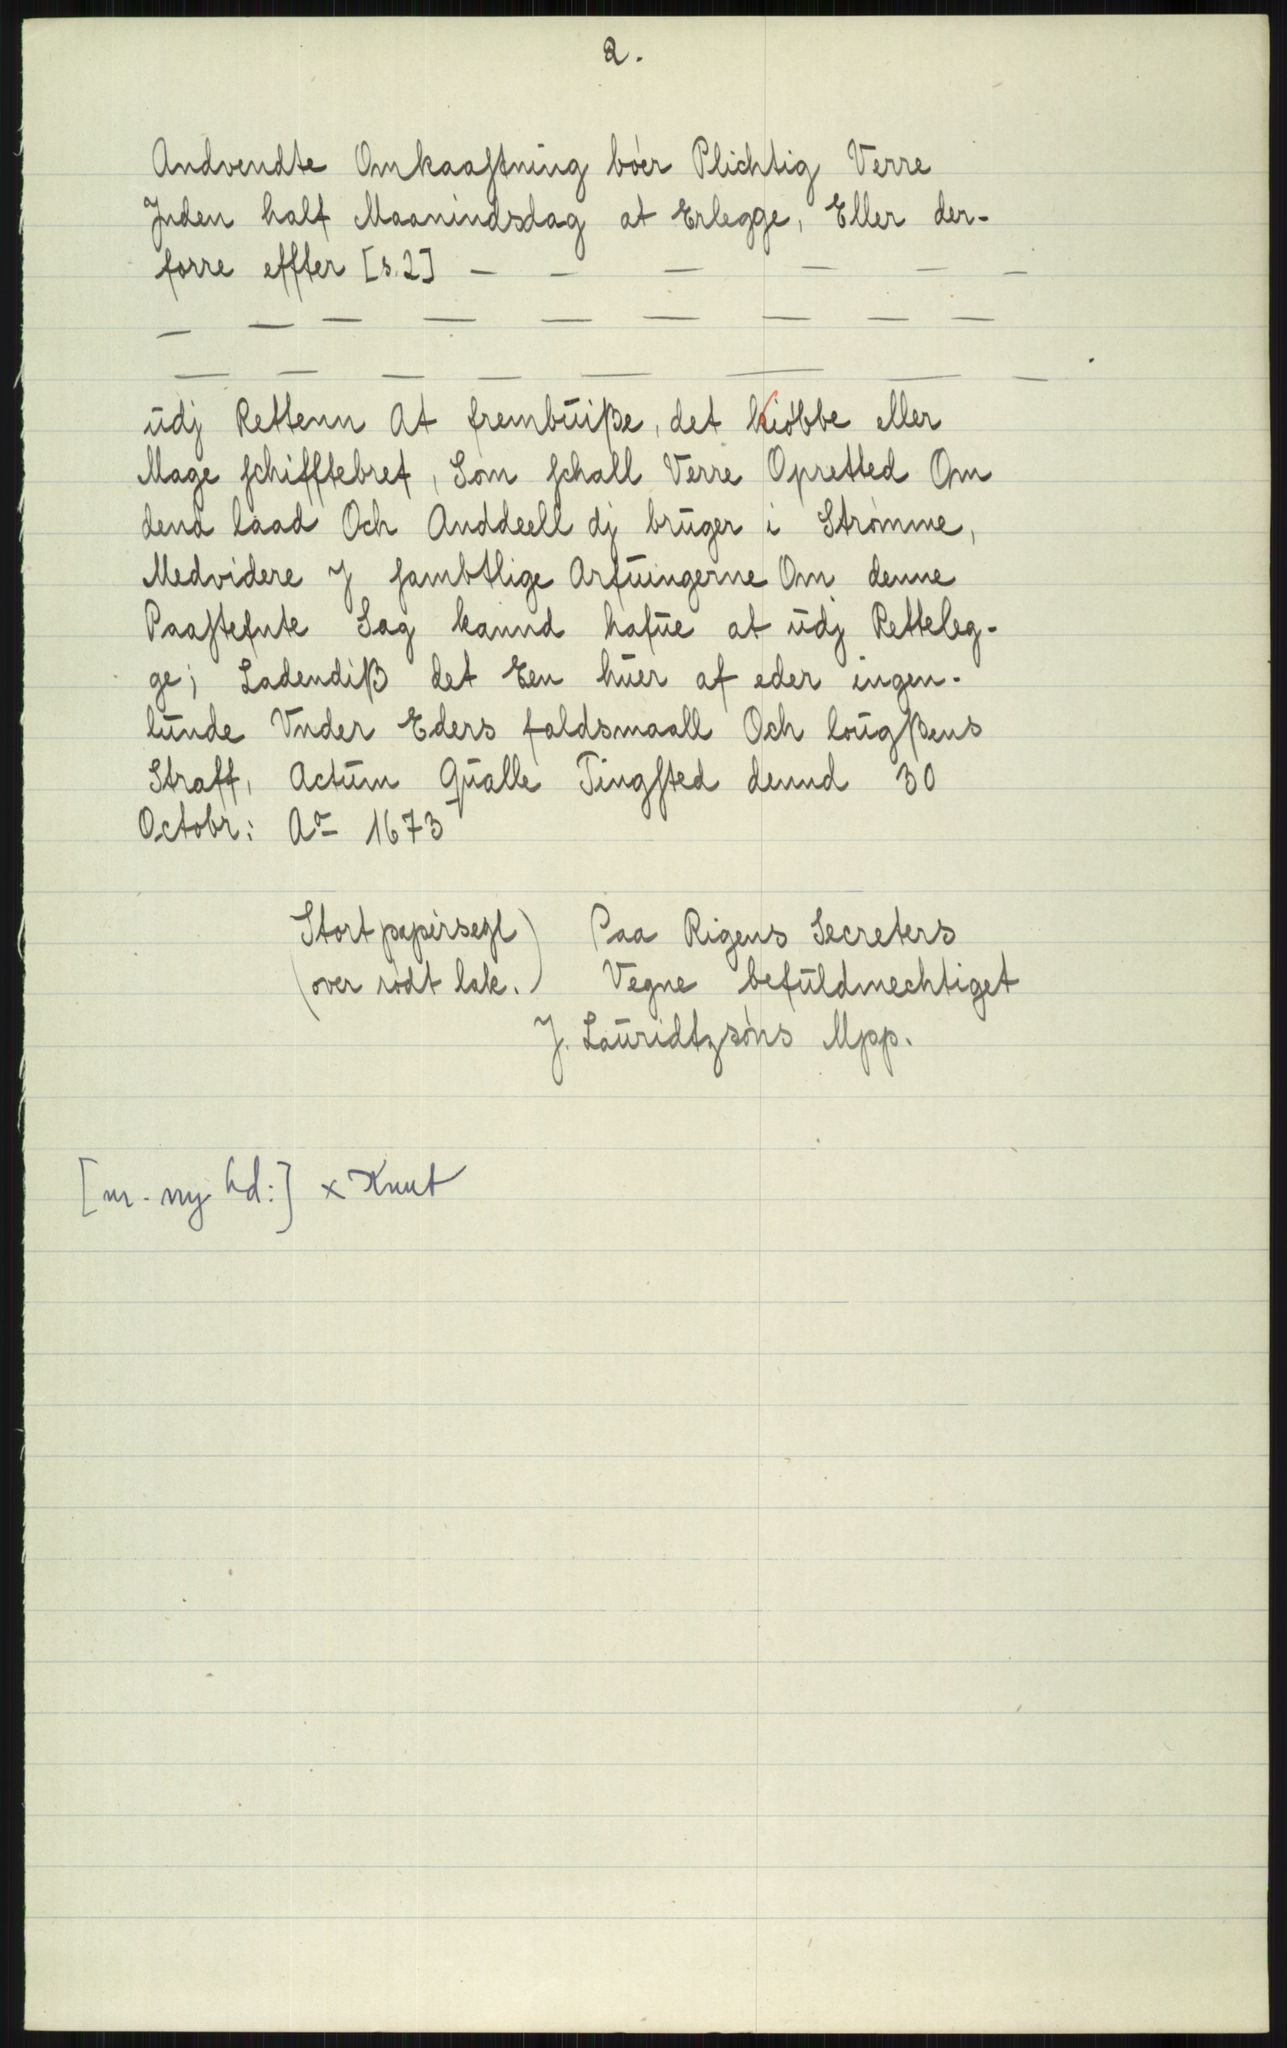 2.
Andvendte Omkaaſtning bóer Plichtig Verre
Jnden half Maanindsdag at Erlegge, Eller der-
forre effter [s.2] — — — — — —
— — — — — — — — —
— — — — — — — —
udj Rettenn At frembuiße, det kiöbbe eller
Mage ſchifftebref, Som ſchall Verre Opretted Om
dend laad Och Anddeell dj bruger i Strömme,
Medvidere J ſambtlige Arfuingerne Om denne
Paaſtefnte Sag kannd hafue at udj Retteleg-
ge; Ladendiß det Een huer af eder ingen-
lunde Vnder Eders faldsmaall Och lougßens
Straff, Actum Qualle Tingſted dennd 30
Octobr: Ao 1673
(Stort papirsegl
over rödt lak.)
Paa Rigens Secreters
Vegne befuldmechtiget
J. Lauridtzsöns Mpp.
[m. ny hd:] x Knut